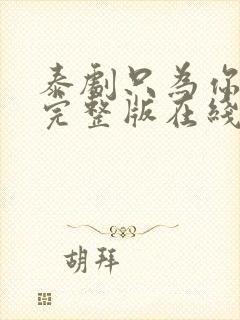 泰劇只為你
完整版在綫
胡拜